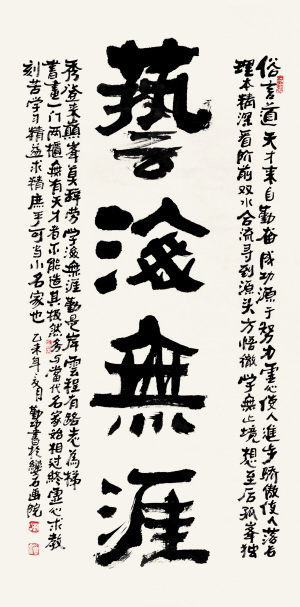 俗言道天才来自勤奋成功源于努力虚心使人進步骄傲使人落后
理本精深看阶前双水合流寻到源头方悟徹学無止境想至后孤峯独
藝海無涯
秀登来巅峯莫辞劳学海無涯勤是岸雲程有路志为梯
書畫一门两無有天才者不能造其极然多与當代名家始相过终虚心求教
刻苦学习精益求精庶乎可当小名家也乙未年亥月勤功書於石画院